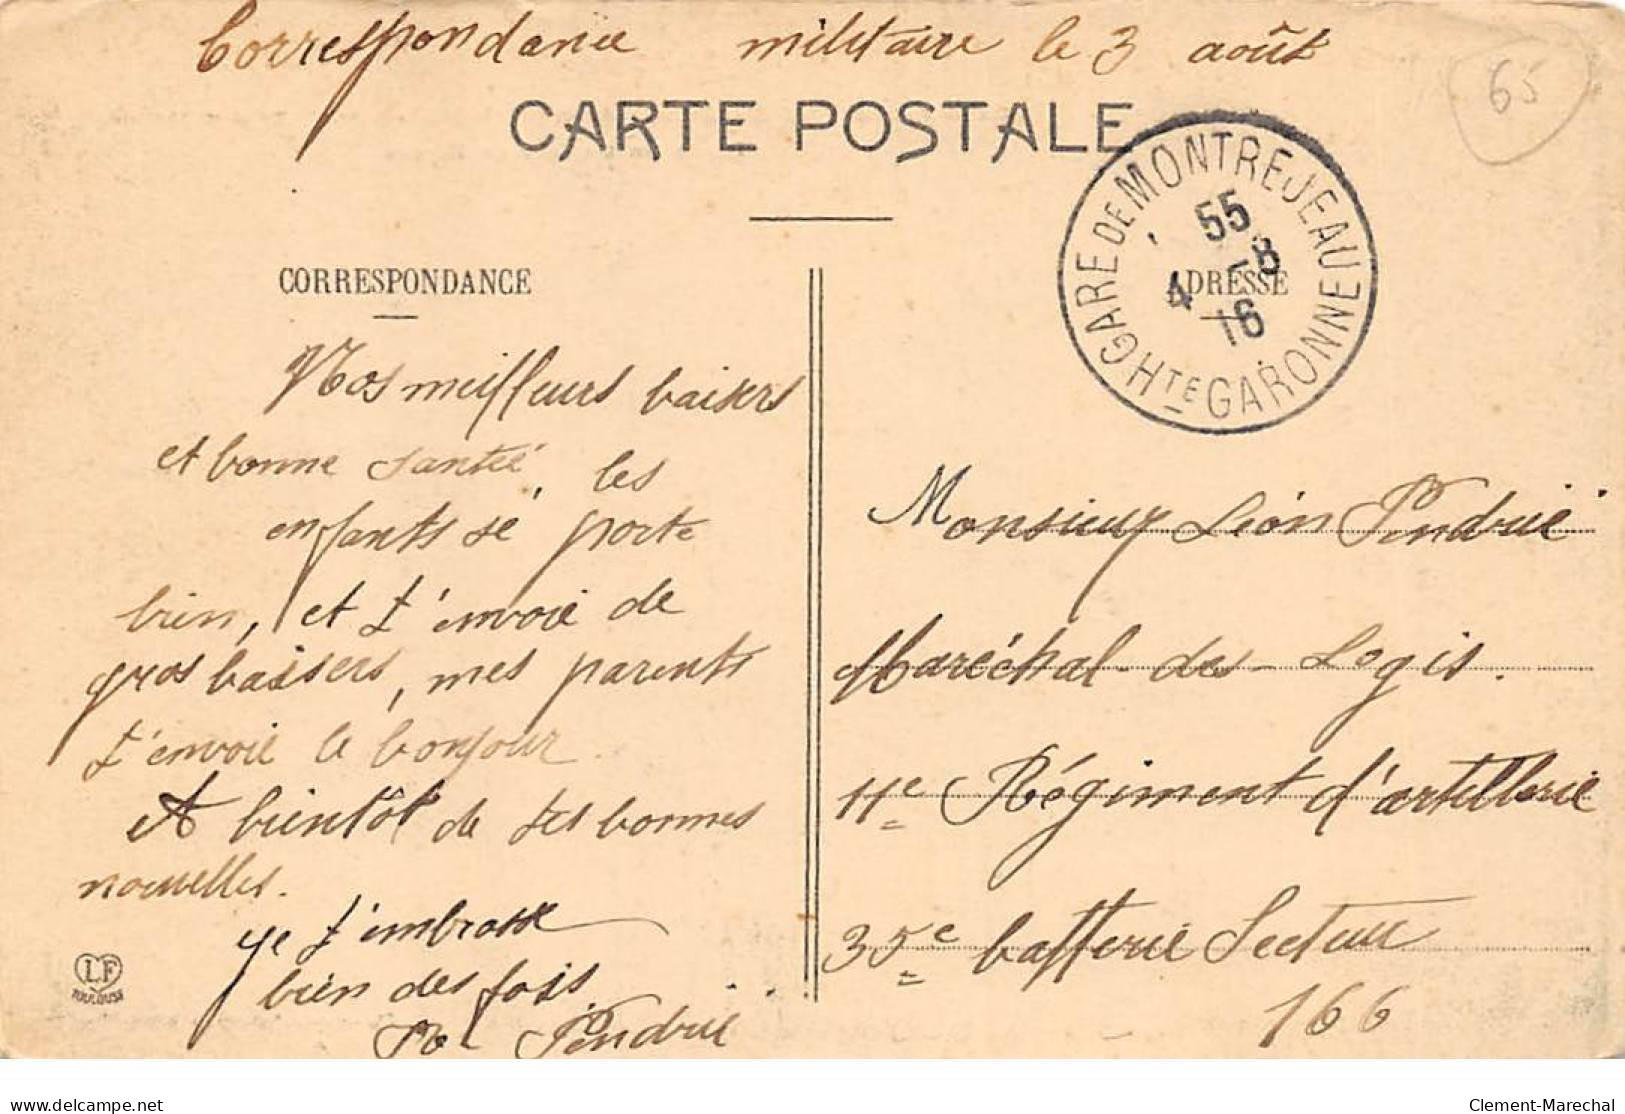 Correspondance militaire le 3 août
65
CARTE POSTALE
GARE DE MONTREJEAU
HTE GARONNE
55
4 -8
16
CORRESPONDANCE
Nos meilleurs baisers
et bonne santée, les
enfants se porte
bien, et t'envoie de
gros baisers, mes parents
t'envoie le bonjour.
A bientôt de tes bonnes
nouvelles.
je t'embrasse
bien des fois
LF
TOULOUSE
ADRESSE
Monsieur Léon
Maréchal-des-Logis.
11e Régiment d'artillerie
35e battterie Secteur
166
delcampe.net
Clement-Marechal